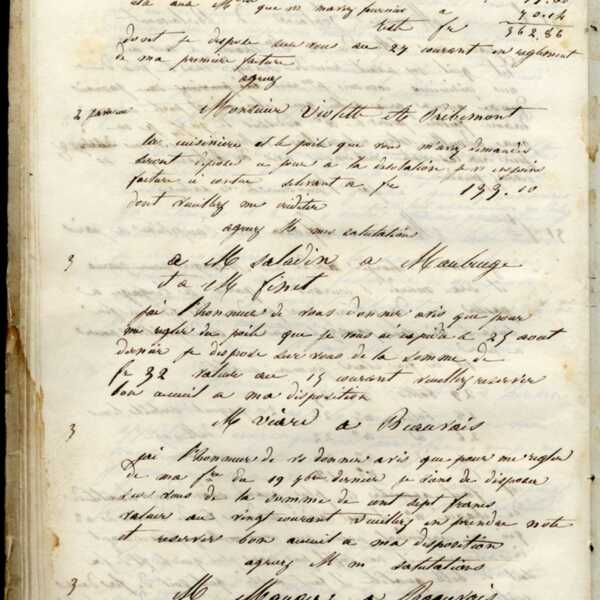 que m marez fournier a
Reste fr 362.86
dont je dispose sur vous au 27 courant en reglement
de ma premiere facture
agreez
2 Monsieur Violette à Ribemont
la cuisiniere et le poile que vous m'avez demandés
seront deposés ce jour a la destination
facture a contre fr 133.10
dont veuillez me crediter
agreez M mes salutation
3 a M saladin a Maubeuge
et a M finet
j'ai l'honneur de vous donner avis que pour
me regler du poile que je vous ai expedié le 25 aout
dernier je dispose sur vous de la somme de
fr 32 valeur au 15 courant veuillez reserver
bon accueil a ma disposition
3 M viare a Beauvais
j'ai l'honneur de vs donner avis que pour me regler
de ma fre du 19 9bre dernier je viens de disposer
sur vous de la somme de cent sept francs
valeur au vingt courant veuillez en prendre note
et reserver bon accueil a ma disposition
agreez M m salutations
3 M a Beauvais